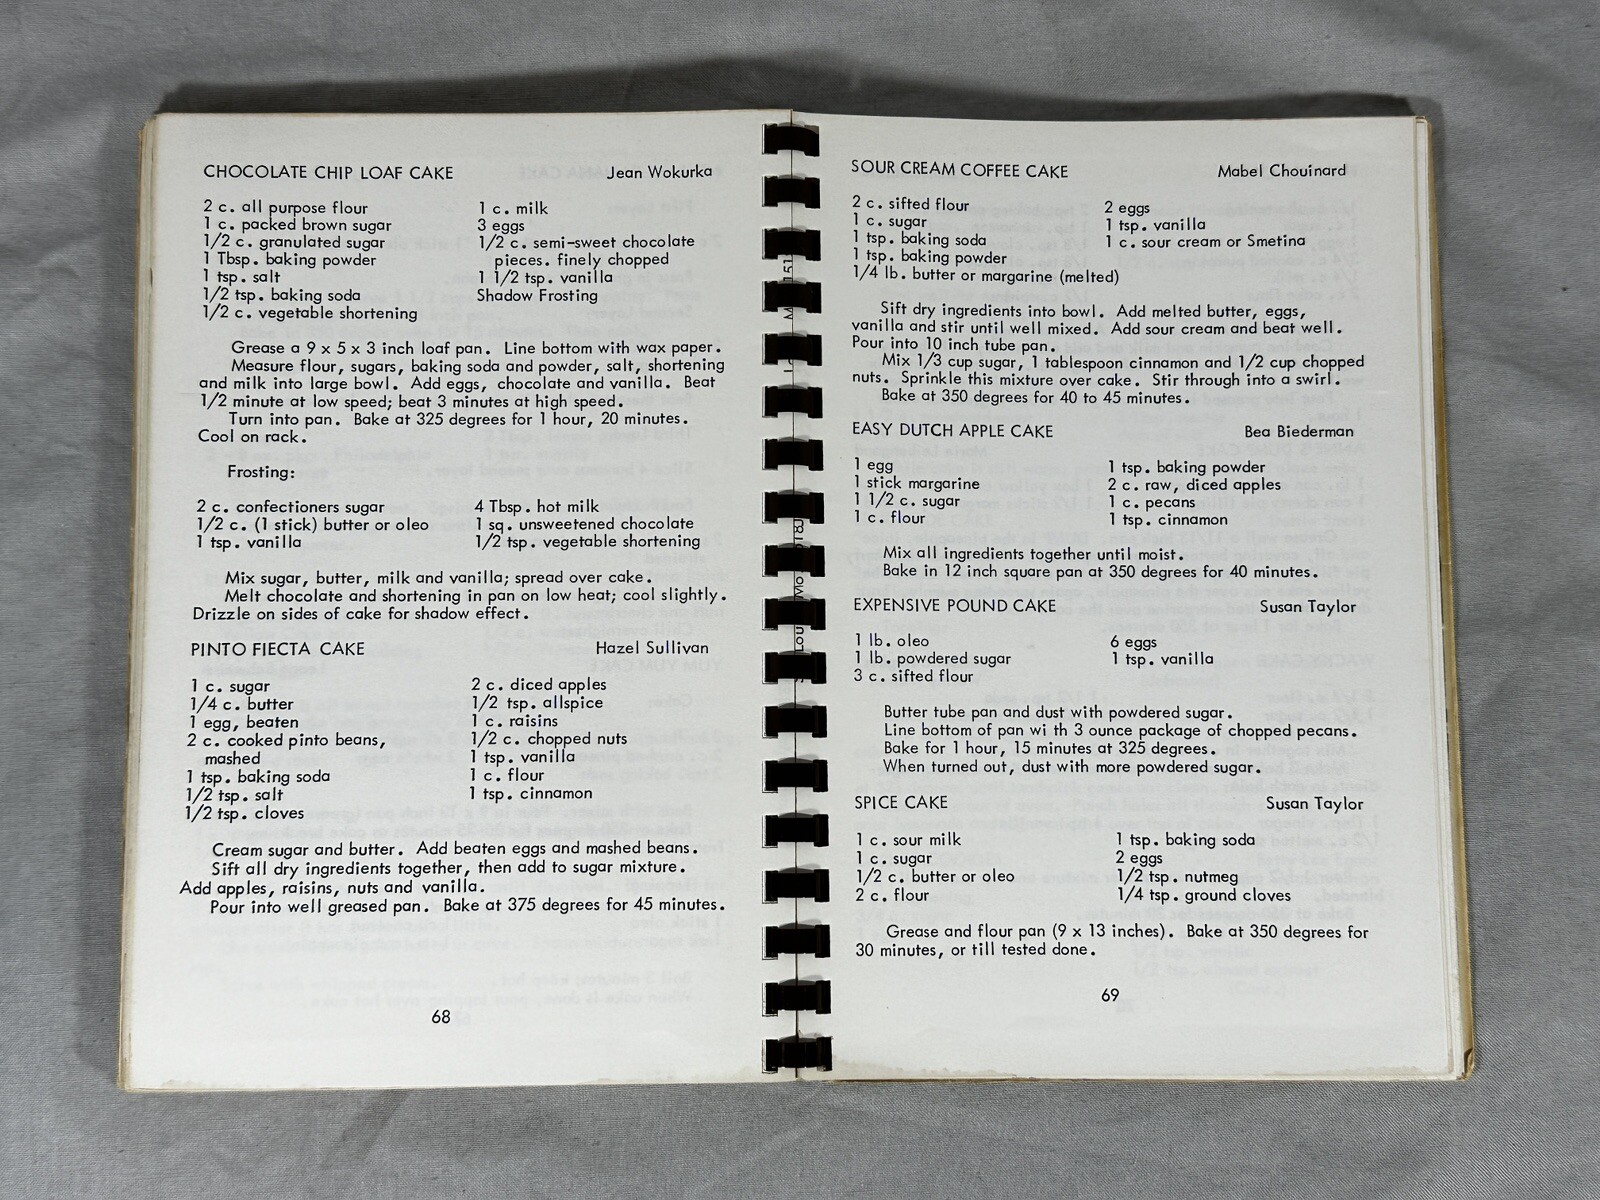 CHOCOLATE CHIP LOAF CAKE Jean Wokurka
2 c. all purpose flour
1 c. packed brown sugar
1/2 c. granulated sugar
1 Tbsp. baking powder
1 tsp. salt
1/2 tsp. baking soda
1/2 c. vegetable shortening
1 c. milk
3 eggs
1/2 c. semi-sweet chocolate
pieces. finely chopped
1 1/2 tsp. vanilla
Shadow Frosting
Grease a 9 x 5 x 3 inch loaf pan. Line bottom with wax paper.
Measure flour, sugars, baking soda and powder, salt, shortening
and milk into large bowl. Add eggs, chocolate and vanilla. Beat
1/2 minute at low speed; beat 3 minutes at high speed.
Turn into pan. Bake at 325 degrees for 1 hour, 20 minutes.
Cool on rack.
Frosting:
2 c. confectioners sugar
1/2 c. (1 stick) butter or oleo
1 tsp. vanilla
4 Tbsp. hot milk
1 sq. unsweetened chocolate
1/2 tsp. vegetable shortening
Mix sugar, butter, milk and vanilla; spread over cake.
Melt chocolate and shortening in pan on low heat; cool slightly.
Drizzle on sides of cake for shadow effect.
PINTO FIECTA CAKE Hazel Sullivan
1 c. sugar
1/4 c. butter
1 egg, beaten
2 c. cooked pinto beans,
mashed
1 tsp. baking soda
1/2 tsp. salt
1/2 tsp. cloves
2 c. diced apples
1/2 tsp. allspice
1 c. raisins
1/2 c. chopped nuts
1 tsp. vanilla
1 c. flour
1 tsp. cinnamon
Cream sugar and butter. Add beaten eggs and mashed beans.
Sift all dry ingredients together, then add to sugar mixture.
Add apples, raisins, nuts and vanilla.
Pour into well greased pan. Bake at 375 degrees for 45 minutes.
68
SOUR CREAM COFFEE CAKE Mabel Chouinard
2 c. sifted flour
1 c. sugar
1 tsp. baking soda
1 tsp. baking powder
1/4 lb. butter or margarine (melted)
2 eggs
1 tsp. vanilla
1 c. sour cream or Smetina
Sift dry ingredients into bowl. Add melted butter, eggs,
vanilla and stir until well mixed. Add sour cream and beat well.
Pour into 10 inch tube pan.
Mix 1/3 cup sugar, 1 tablespoon cinnamon and 1/2 cup chopped
nuts. Sprinkle this mixture over cake. Stir through into a swirl.
Bake at 350 degrees for 40 to 45 minutes.
EASY DUTCH APPLE CAKE Bea Biederman
1 egg
1 stick margarine
1 1/2 c. sugar
1 c. flour
1 tsp. baking powder
2 c. raw, diced apples
1 c. pecans
1 tsp. cinnamon
Mix all ingredients together until moist.
Bake in 12 inch square pan at 350 degrees for 40 minutes.
EXPENSIVE POUND CAKE Susan Taylor
1 lb. oleo
1 lb. powdered sugar
3 c. sifted flour
6 eggs
1 tsp. vanilla
Butter tube pan and dust with powdered sugar.
Line bottom of pan wi th 3 ounce package of chopped pecans.
Bake for 1 hour, 15 minutes at 325 degrees.
When turned out, dust with more powdered sugar.
SPICE CAKE Susan Taylor
1 c. sour milk
1 c. sugar
1/2 c. butter or oleo
2 c. flour
1 tsp. baking soda
2 eggs
1/2 tsp. nutmeg
1/4 tsp. ground cloves
Grease and flour pan (9 x 13 inches). Bake at 350 degrees for
30 minutes, or till tested done.
69